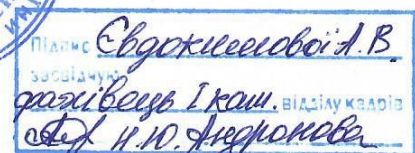 Підпис Євдокимової А.В.
засвідчую
фахівець І кат. відділу кадрів
Н.Ю. Андронова